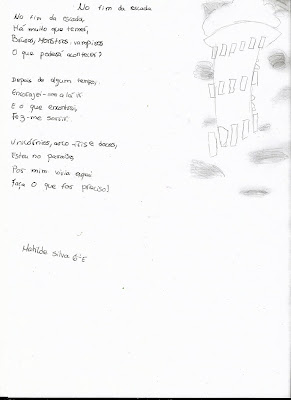 No fim da escada
No fim da escada,
Há muito que temer,
Bruxas, Monstros, vampiros
O que poderá acontecer?
Depois de algum tempo,
Encorajei-me a lá ir
E o que encontrei,
Fez-me sorrir.
Unicórnios, arco-íris e doces,
Estou no paraíso
Por mim vivia aqui
Faço O que for preciso!
Matilde Silva 6ºE